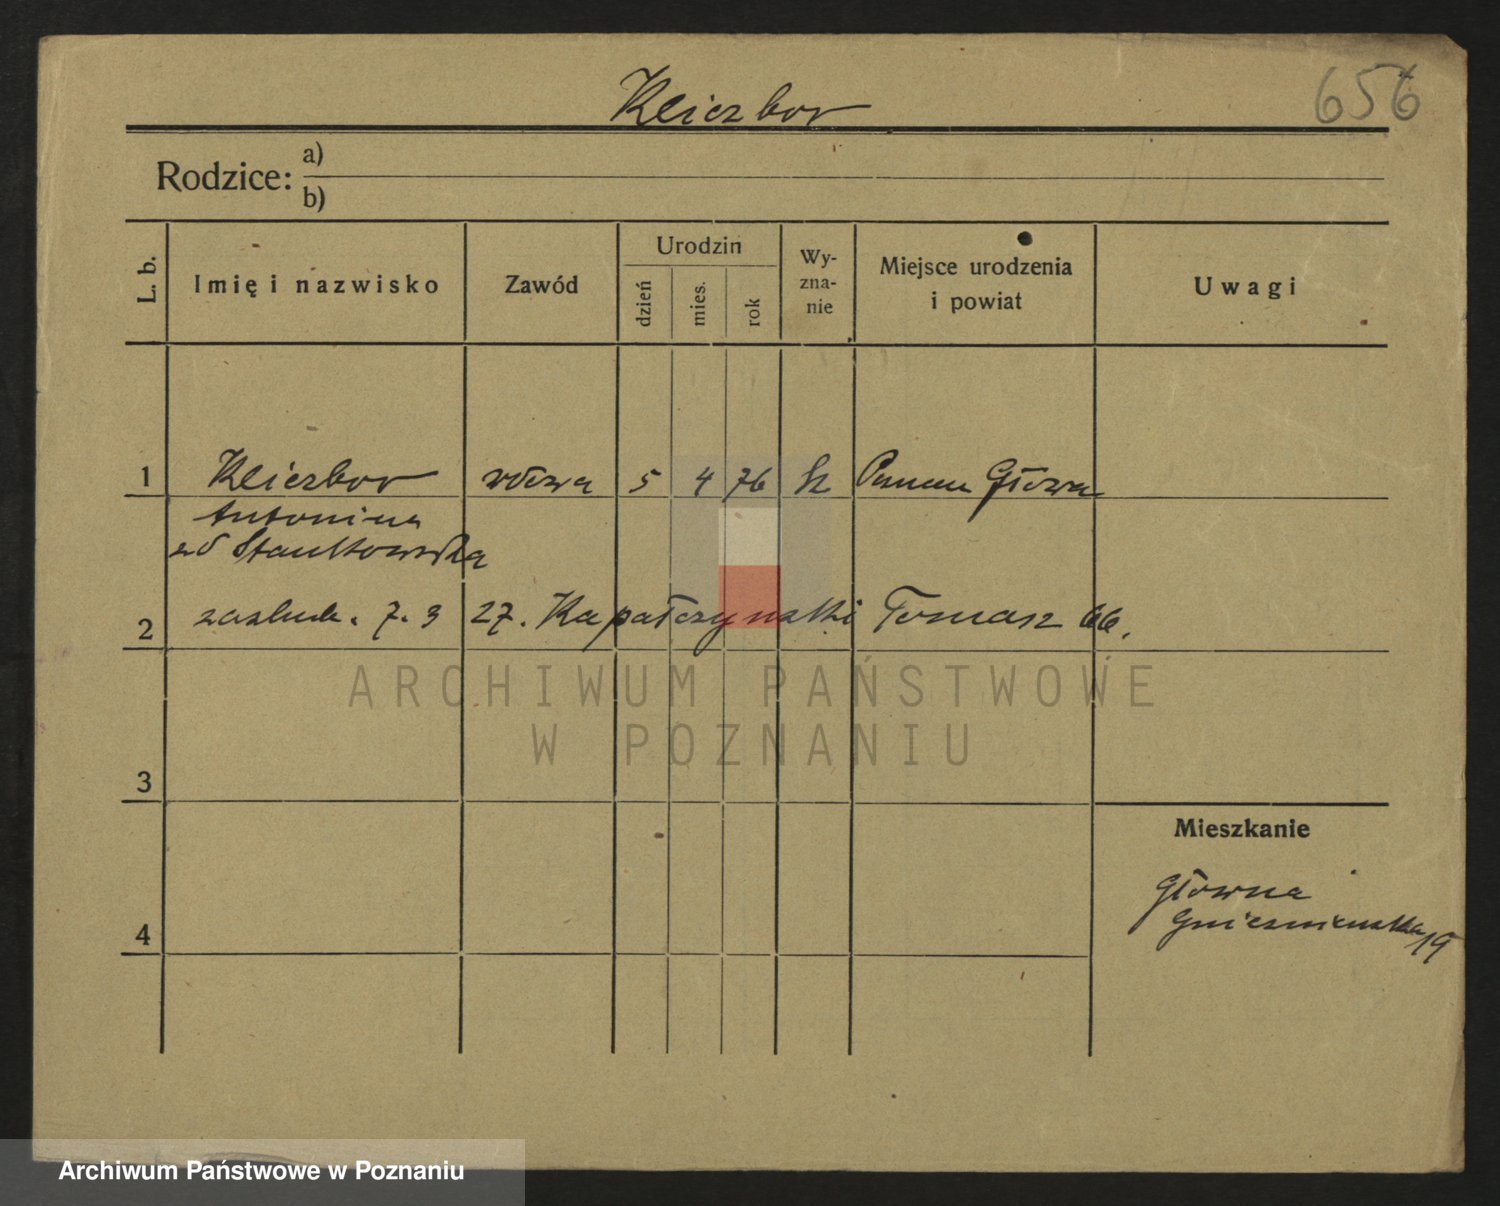 Kliczbor
656
Rodzice: a)
b)
L. b.
Imię i nazwisko
Zawód
Urodzin
dzień
mies.
rok
Wy-
zna-
nie
Miejsce urodzenia
i powiat
Uwagi
1 Kliczbor wdowa 5 4 76 Główna
Antonina
zd Stankowska
2 7. 3 27. Kapałczyński Tomasz 66.
ARCHIWUM PAŃSTWOWE
W POZNANIU
3
Mieszkanie
Główna
Gnieznieńska 19
4
Archiwum Państwowe w Poznaniu